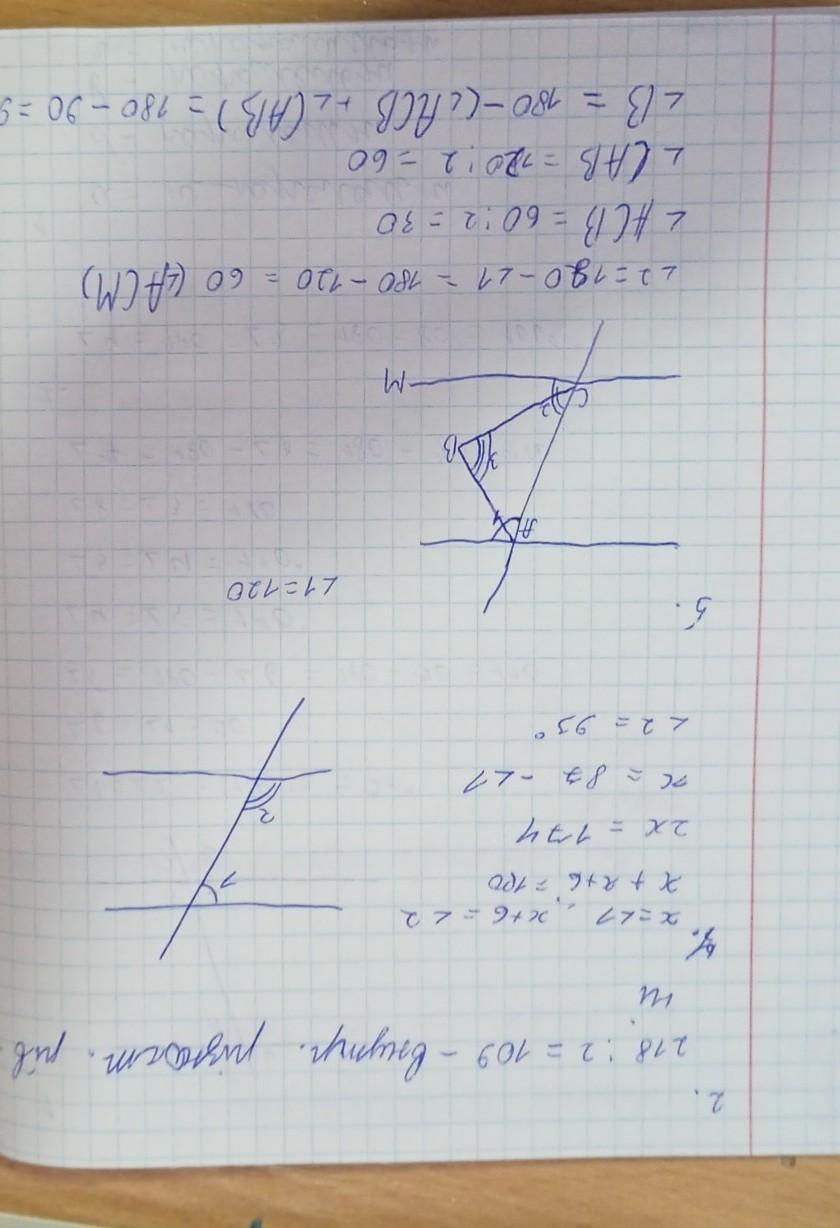 2.
218 : 2 = 109 - внутр. різност. рів
4.
x = ∠1, x+6 = ∠2
x + x+6 = 180
2x = 174
x = 87 - ∠1
∠2 = 93°
1
2
5.
∠1 = 120
A
1
B
3
C
2
M
∠2 = 180 - ∠1 = 180 - 120 = 60 (∠ACM)
∠ACB = 60 : 2 = 30
∠CAB = 120 : 2 = 60
∠B = 180 - (∠ACB + ∠CAB) = 180 - 90 = 9